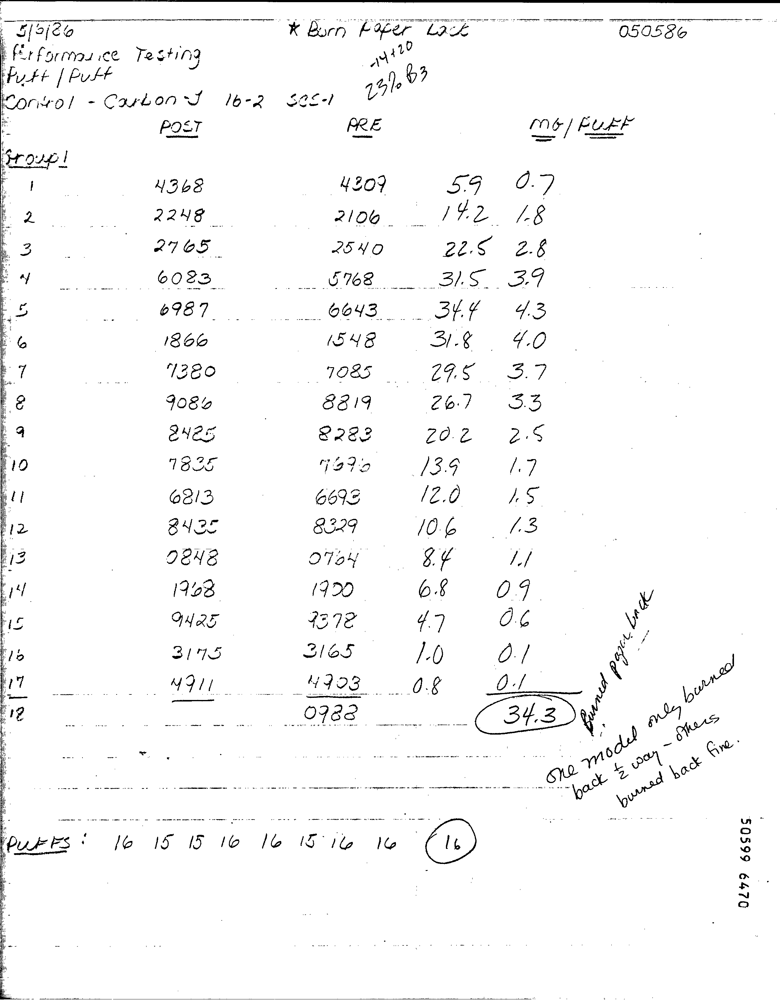 5/5/86 * Burn Paper Back 050586
Performance Testing -14+20
Puff / Puff 23% B3
Control - Carbon-J 16-2 SCS-1
POST PRE MG/PUFF
Group 1
1 4368 4309 5.9 0.7
2 2248 2106 14.2 1.8
3 2765 2540 22.5 2.8
4 6083 5768 31.5 3.9
5 6987 6643 34.4 4.3
6 1866 1548 31.8 4.0
7 7380 7085 29.5 3.7
8 9086 8819 26.7 3.3
9 8485 8283 20.2 2.5
10 7835 7696 13.9 1.7
11 6813 6693 12.0 1.5
12 8435 8329 10.6 1.3
13 0848 0764 8.4 1.1
14 1968 1900 6.8 0.9
15 9425 9378 4.7 0.6
16 3175 3165 1.0 0.1
17 4911 4903 0.8 0.1
18 0988 34.3
Burned paper back
one model only burned
back 1/2 way - others
burned back fine.
PUFFS: 16 15 15 16 16 15 16 16 16
50599 6470